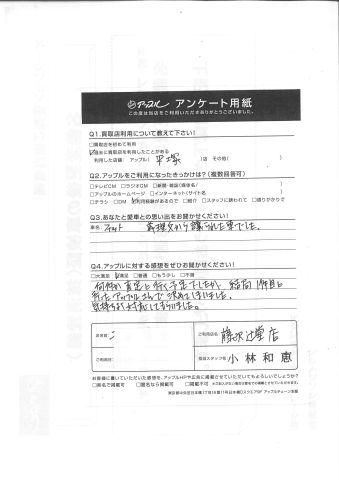 アップル アンケート用紙
この度は当店をご利用いただきありがとうございました。
Q1.買取店利用について教えて下さい!
□買取店を初めて利用
☑過去に買取店を利用したことがある
利用した店舗: アップル( 平塚 )店 その他( )
Q2.アップルをご利用になったきっかけは?(複数回答可)
□テレビCM □ラジオCM □新聞・雑誌(媒体名: )
□アップルのホームページ □インターネット(サイト名 )
□チラシ □DM ☑利用経験があるので □紹介 □スタッフに誘われて □通りがかりで
Q3.あなたと愛車との思い出をお聞かせください!
車名: フィット 義理父から譲られた車でした。
Q4.アップルに対する感想をぜひお聞かせください!
□大満足 ☑満足 □普通 □もう少し □不満
何件か査定に行く予定でしたが、結局1件目に
行ったアップルさんで決めてしまいました。
気持ちよく対応して
お名前:
ご利用店名: 藤沢辻堂店
ご利用日:
担当スタッフ名: 小林和恵
お客様に書いていただいた感想を、アップルHPや広告に掲載させていただいてもよろしいでしょうか?
□実名で掲載可 □匿名なら掲載可 □掲載不可